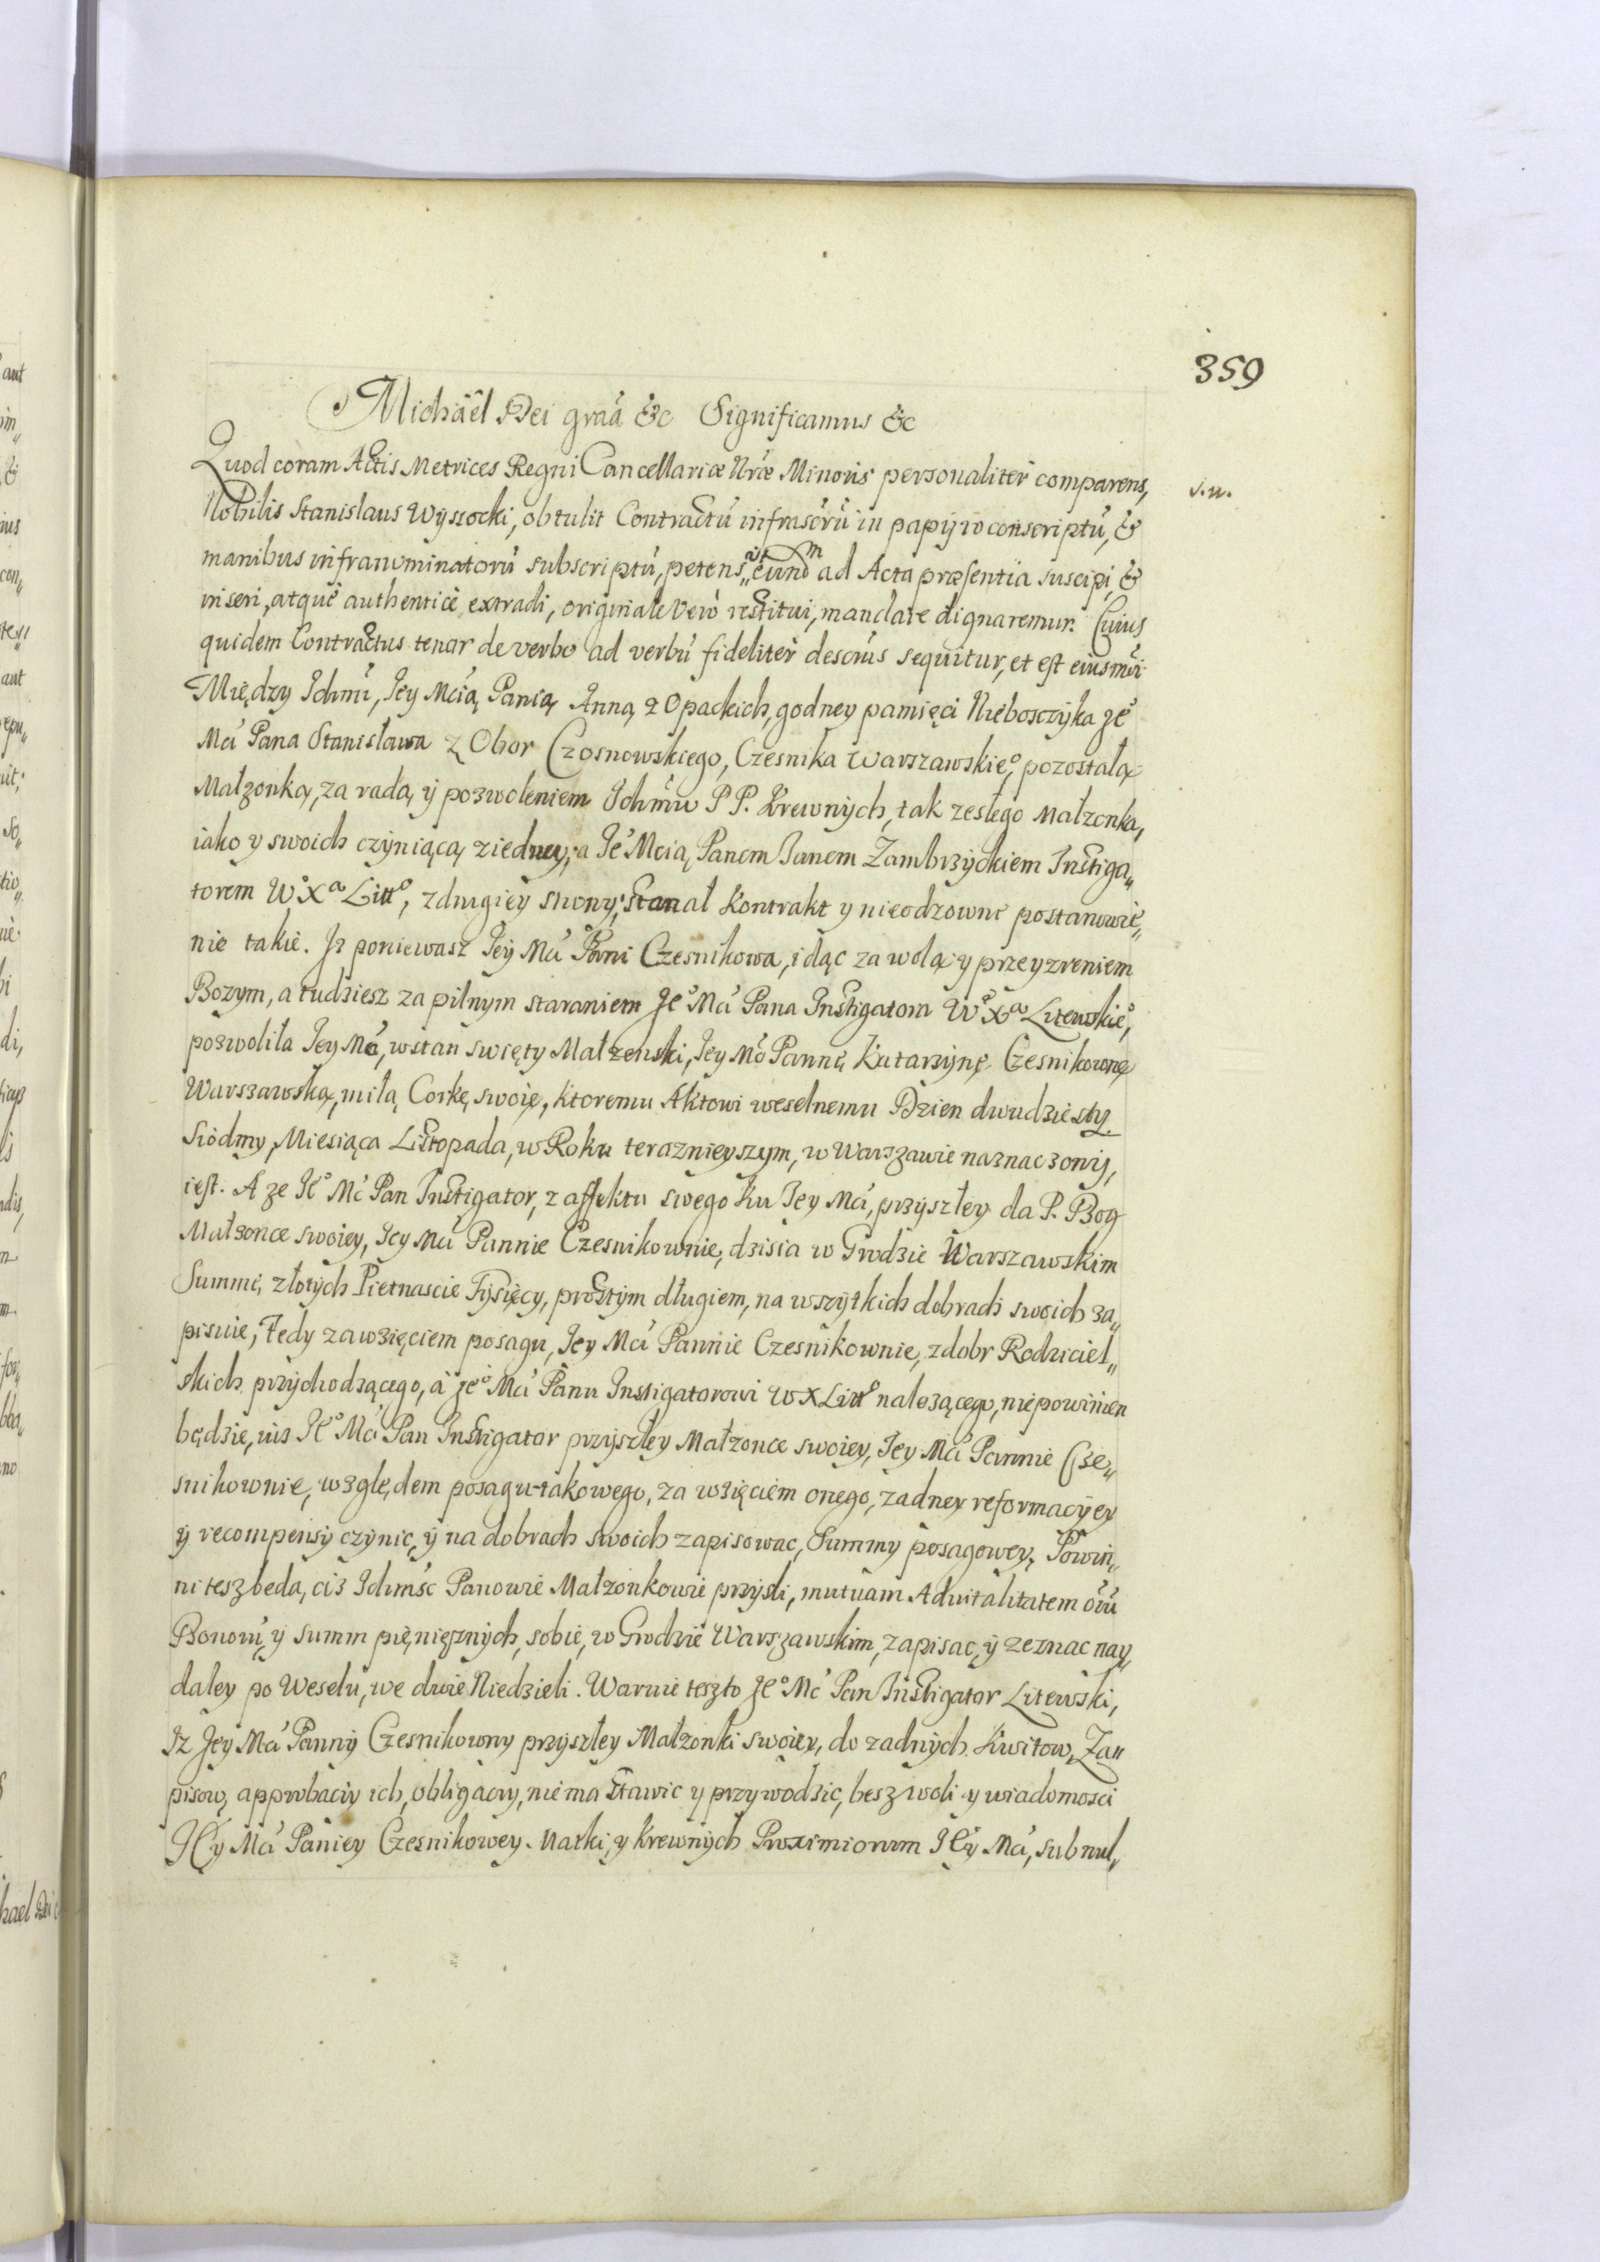 359
Michäel Dei graã &c Significamus &c
Quod coram Actis Metrices Regni Cancellariæ Nræ Minoris personaliter comparens,
s. w.
Nobilis Stanislaus Wyssocki, obtulit Contractũ infrascrũ in papyro conscriptũ, &
manibus infranominatorũ subscriptũ, petens, ut eund ad Acta præsentia suscipi, &
inseri, atque authenticè extradi, originale verò restitui, mandare dignaremur. Cuius
quidem Contractus tenor de verbo ad verbũ fideliter descrus sequitur, et est eiusmõi
Między Ichmũ, Jey Mcią Panią Anną z Opackich, godney pamięci Nieboszczyka Je°
Mci Pana Stanisława z Obor Czosnowskiego, Czesnika Warszawskie°, pozostałą
Małzonką, za radą y pozwoleniem Ichmũw P P. Krewnych, tak zesłego Małzonka,
iako y swoich czyniącą ziedney, a Je° Mcią Panem Janem Zambrzyckiem Instiga„
torem W° X^a Litt°, zdrugiey strony, stanął Kontrakt y nieodzowne postanowie„
nie takie. Iz poniewasz Jey Mci Pani Czesnikowa, idąc za wolą y przeyzreniem
Bozym, a tudziesz za pilnym staraniem Je° Mci Pana Instigatora W° X^a Litewskie°,
pozwoliła Jey Mc, wstan swięty Małzenski, Jey Mc Pannę Katarzynę Czesnikownę
Warszawską, miłą Corkę swoię, ktoremu Aktowi weselnemu Dzien dwudziesty
siodmy, Miesiąca Listopada, w Roku teraznieyszym, w Warszawie naznaczony,
iest. A ze Je° Mc Pan Instigator, z affektu swego ku Jey Mci, przyszłey da P. Bog
Małzonce swoiey, Jey Mci Pannie Czesnikownie, dzisia w Grodzie Warszawskim
Summę, złotych Pietnascie Tysięcy, prostym długiem, na wszytkich dobrach swoich za„
pisuie, Tedy zawzięciem posagu, Jey Mci Pannie Czesnikownie, zdobr Rodziciel„
skich przychodzącego, a Je° Mci Panu Instigatorowi W X Litt° nalezącego, niepowinien
będzie, iusz Je° Mc Pan Instigator przyszłey Małzonce swoiey, Jey Mci Pannie Cze„
snikownie, względem posagu takowego, za wzięciem onego, zadney reformacyey
y recompensy czynic, y na dobrach swoich zapisowac, Summy posagowey, Powin„
ni tesz bedą, cisz Ichmśc Panowie Małzonkowie przyszli, mutuam Advitalitatem oĩũ
Bonorũ, y summ pięnięznych, sobie, w Grodzie Warszawskim, zapisac, y zeznac nay„
daley po Weselu, we dwie Niedzieli. Waruie teszto Je° Mc Pan Instigator Litewski,
Iz Jey Mci Panny Czesnikowny przyszłey Małzonki swoiey, do zadnych Kwitow, Za„
pisow, approbaciy ich, obligaciy, niema stawic y przywodzic, besz woli y wiadomosci
Jey Mci Paniey Czesnikowey Matki, y krewnych Proximiorum Jey Mci, sub nul„